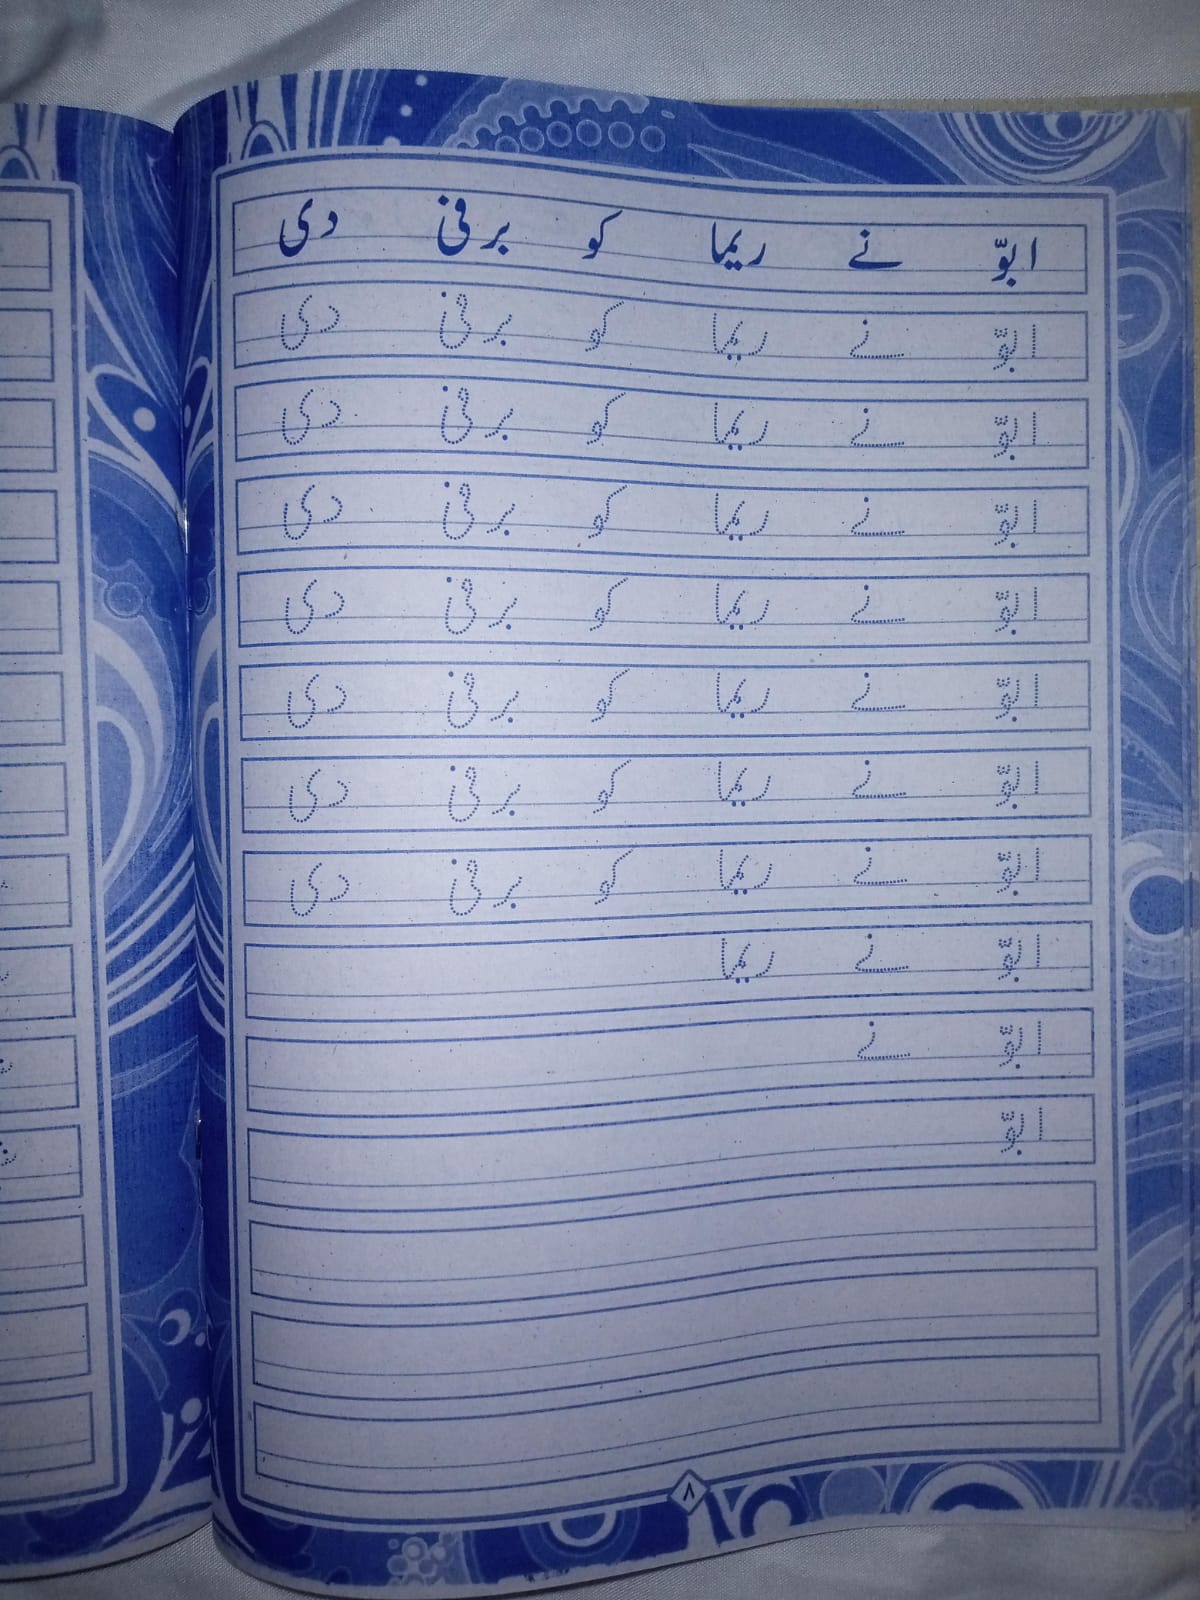 ابّو نے ریما کو برفی دی
ابّو نے ریما کو برفی دی
ابّو نے ریما کو برفی دی
ابّو نے ریما کو برفی دی
ابّو نے ریما کو برفی دی
ابّو نے ریما کو برفی دی
ابّو نے ریما کو برفی دی
ابّو نے ریما کو برفی دی
ابّو نے ریما
ابّو نے
ابّو
۸